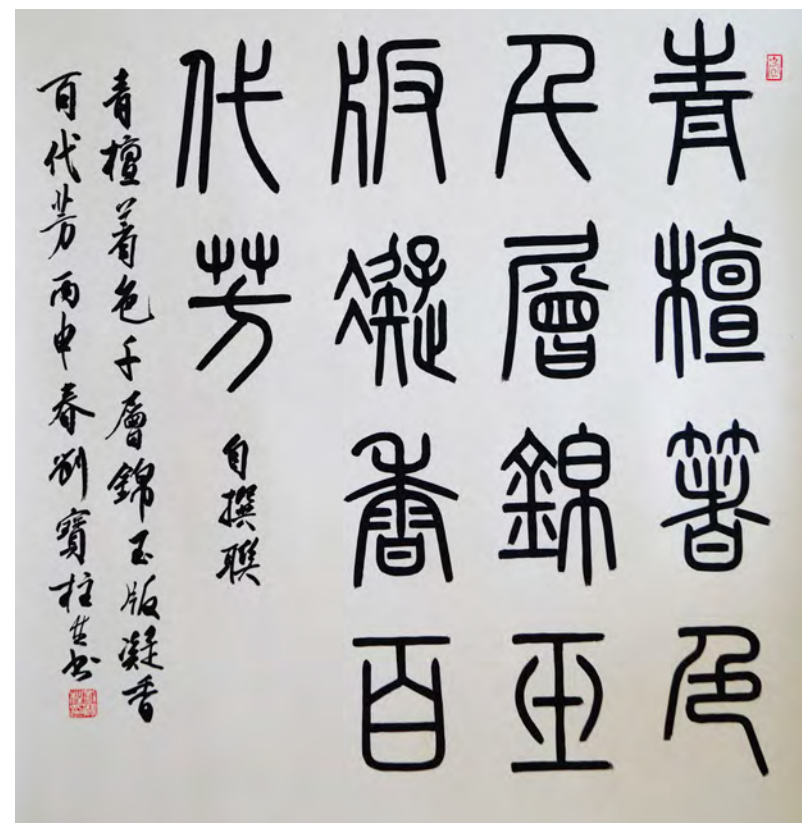 青檀箸色
千層錦玉
版凝香百
代芳
自撰聯
青檀着色千層錦玉版凝香
百代芳丙申春劉寶柱书